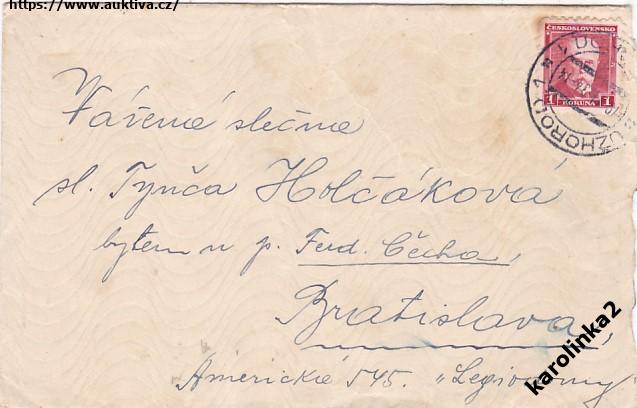 https://www.auktiva.cz/
ČESKOSLOVENSKO
1 KORUNA 1
UŽHOROD 1
Vážená slečna
sl. Tynča Holčáková
bytem u p. Ferd. Čecha,
Bratislava,
Americké 545. „Legiodomy"
karolinka2